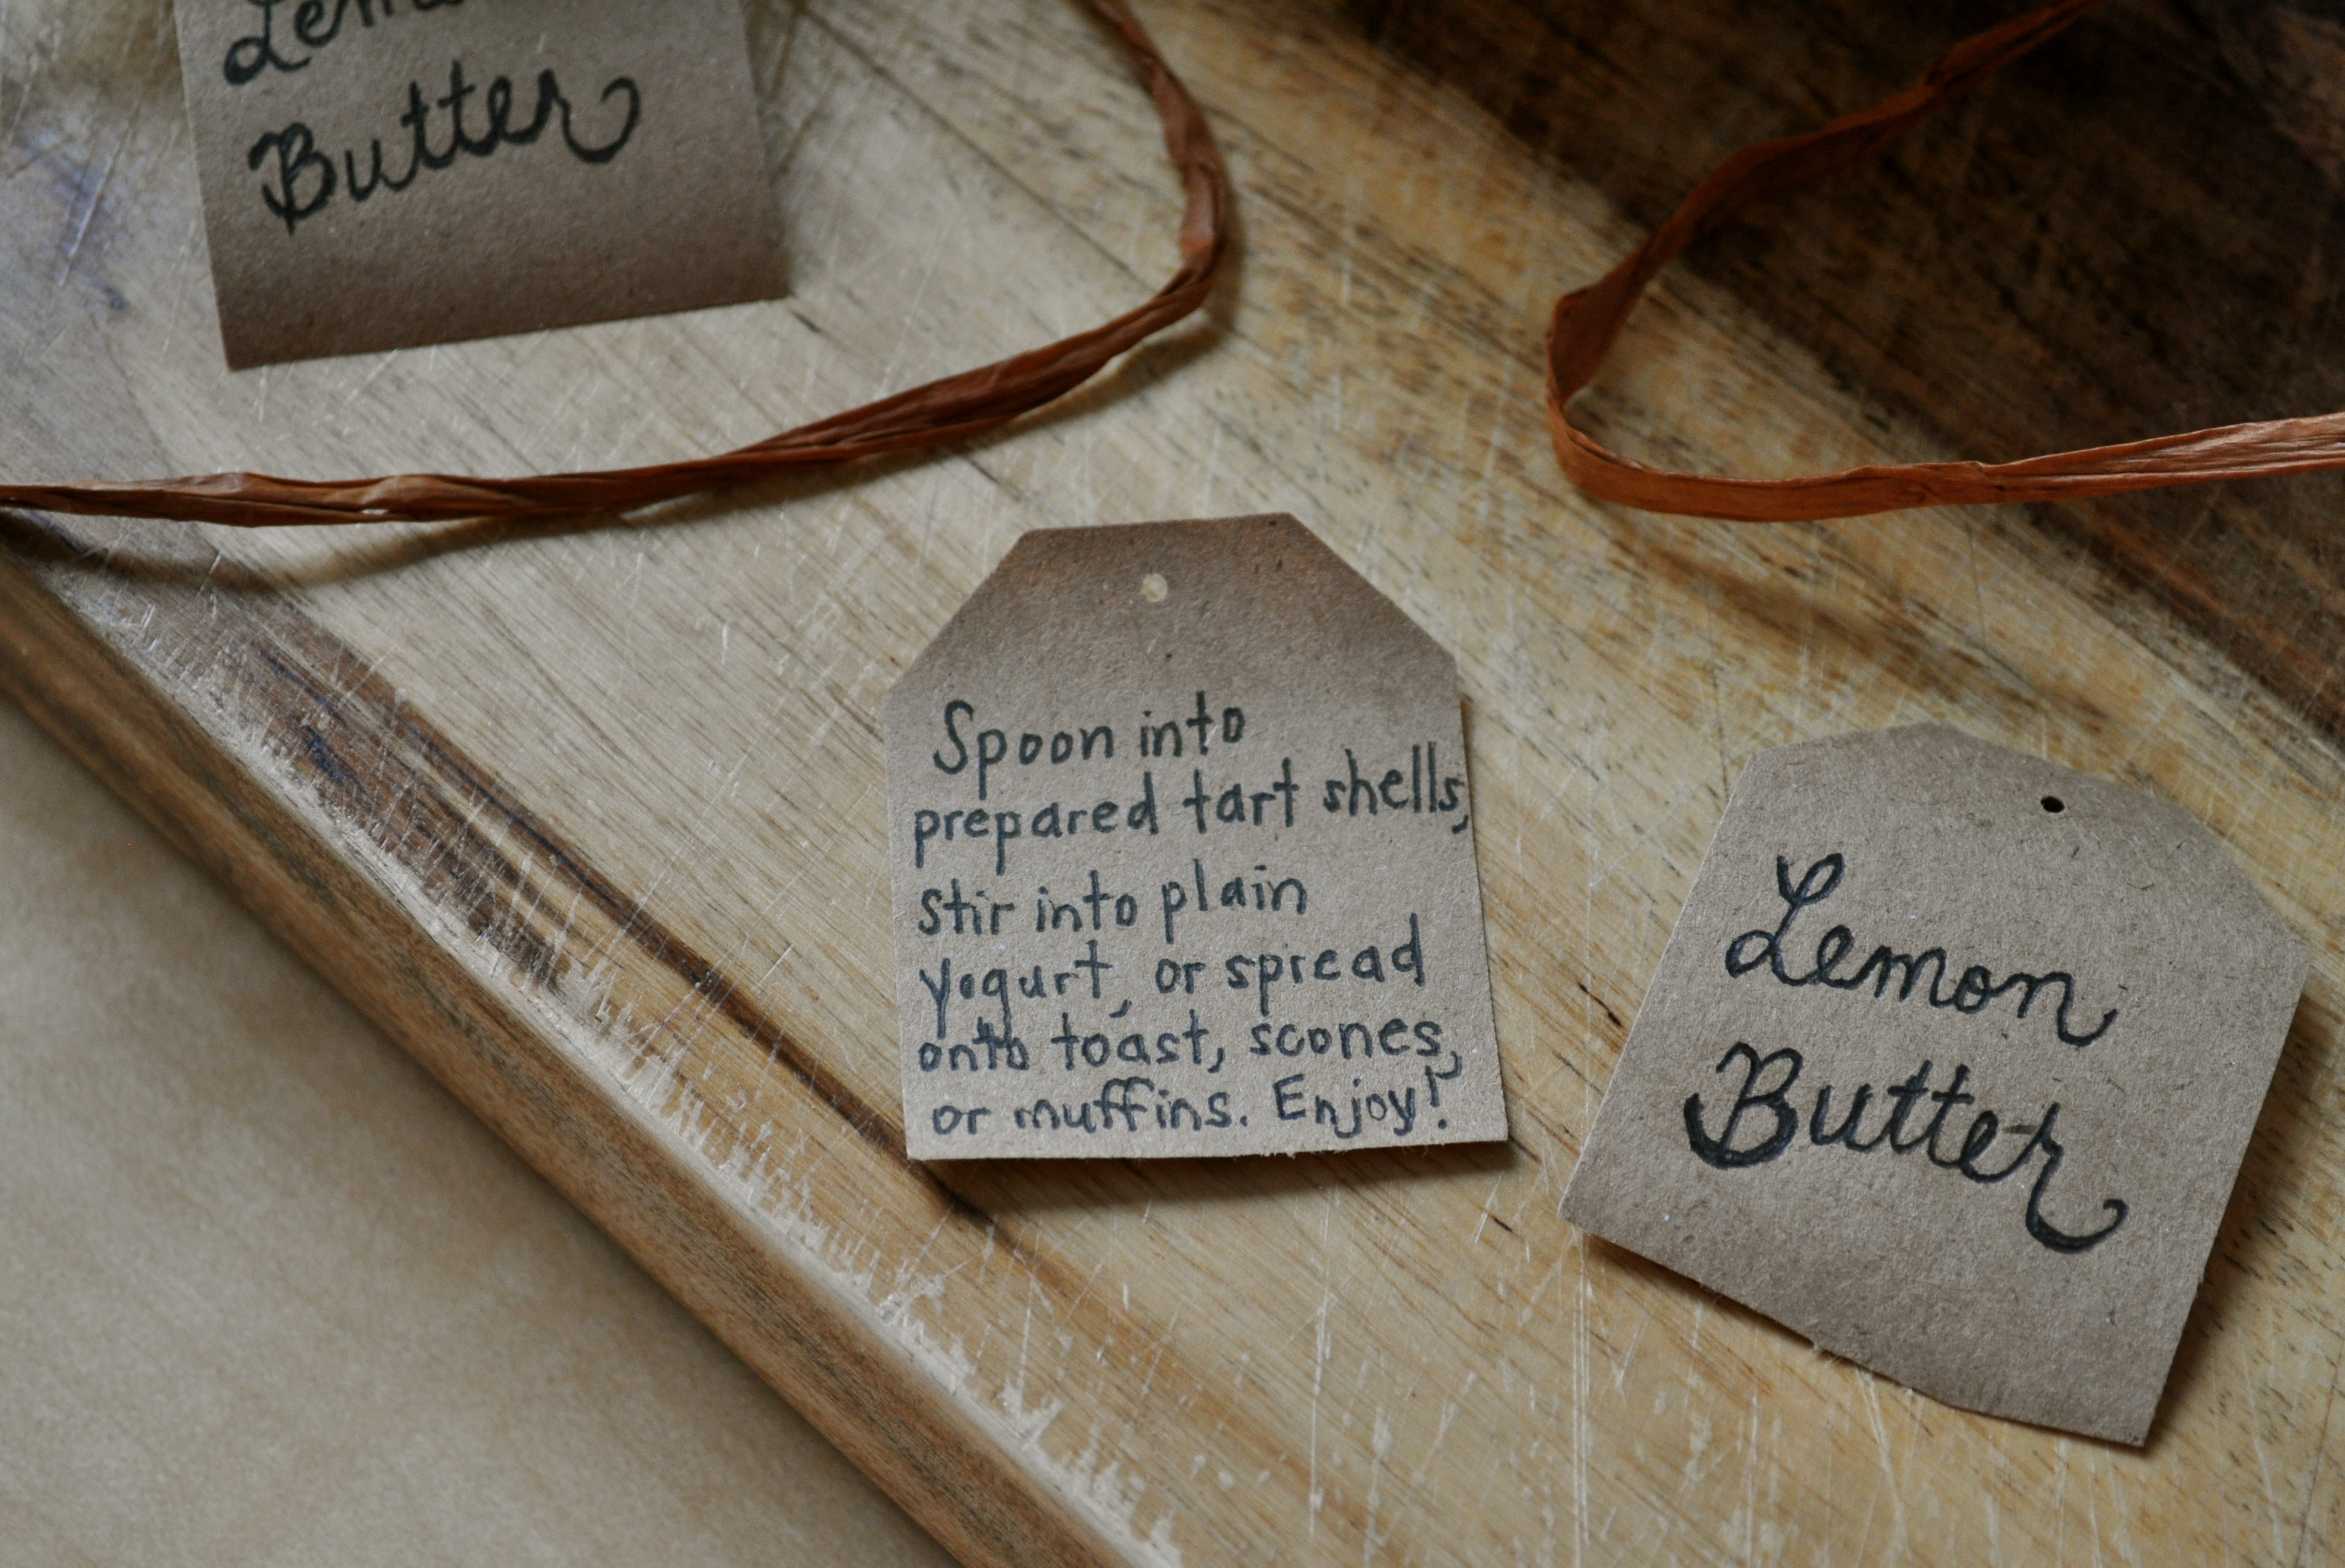 Butter
Spoon into
prepared tart shells,
stir into plain
yogurt, or spread
onto toast, scones,
or muffins. Enjoy!
Lemon
Butter